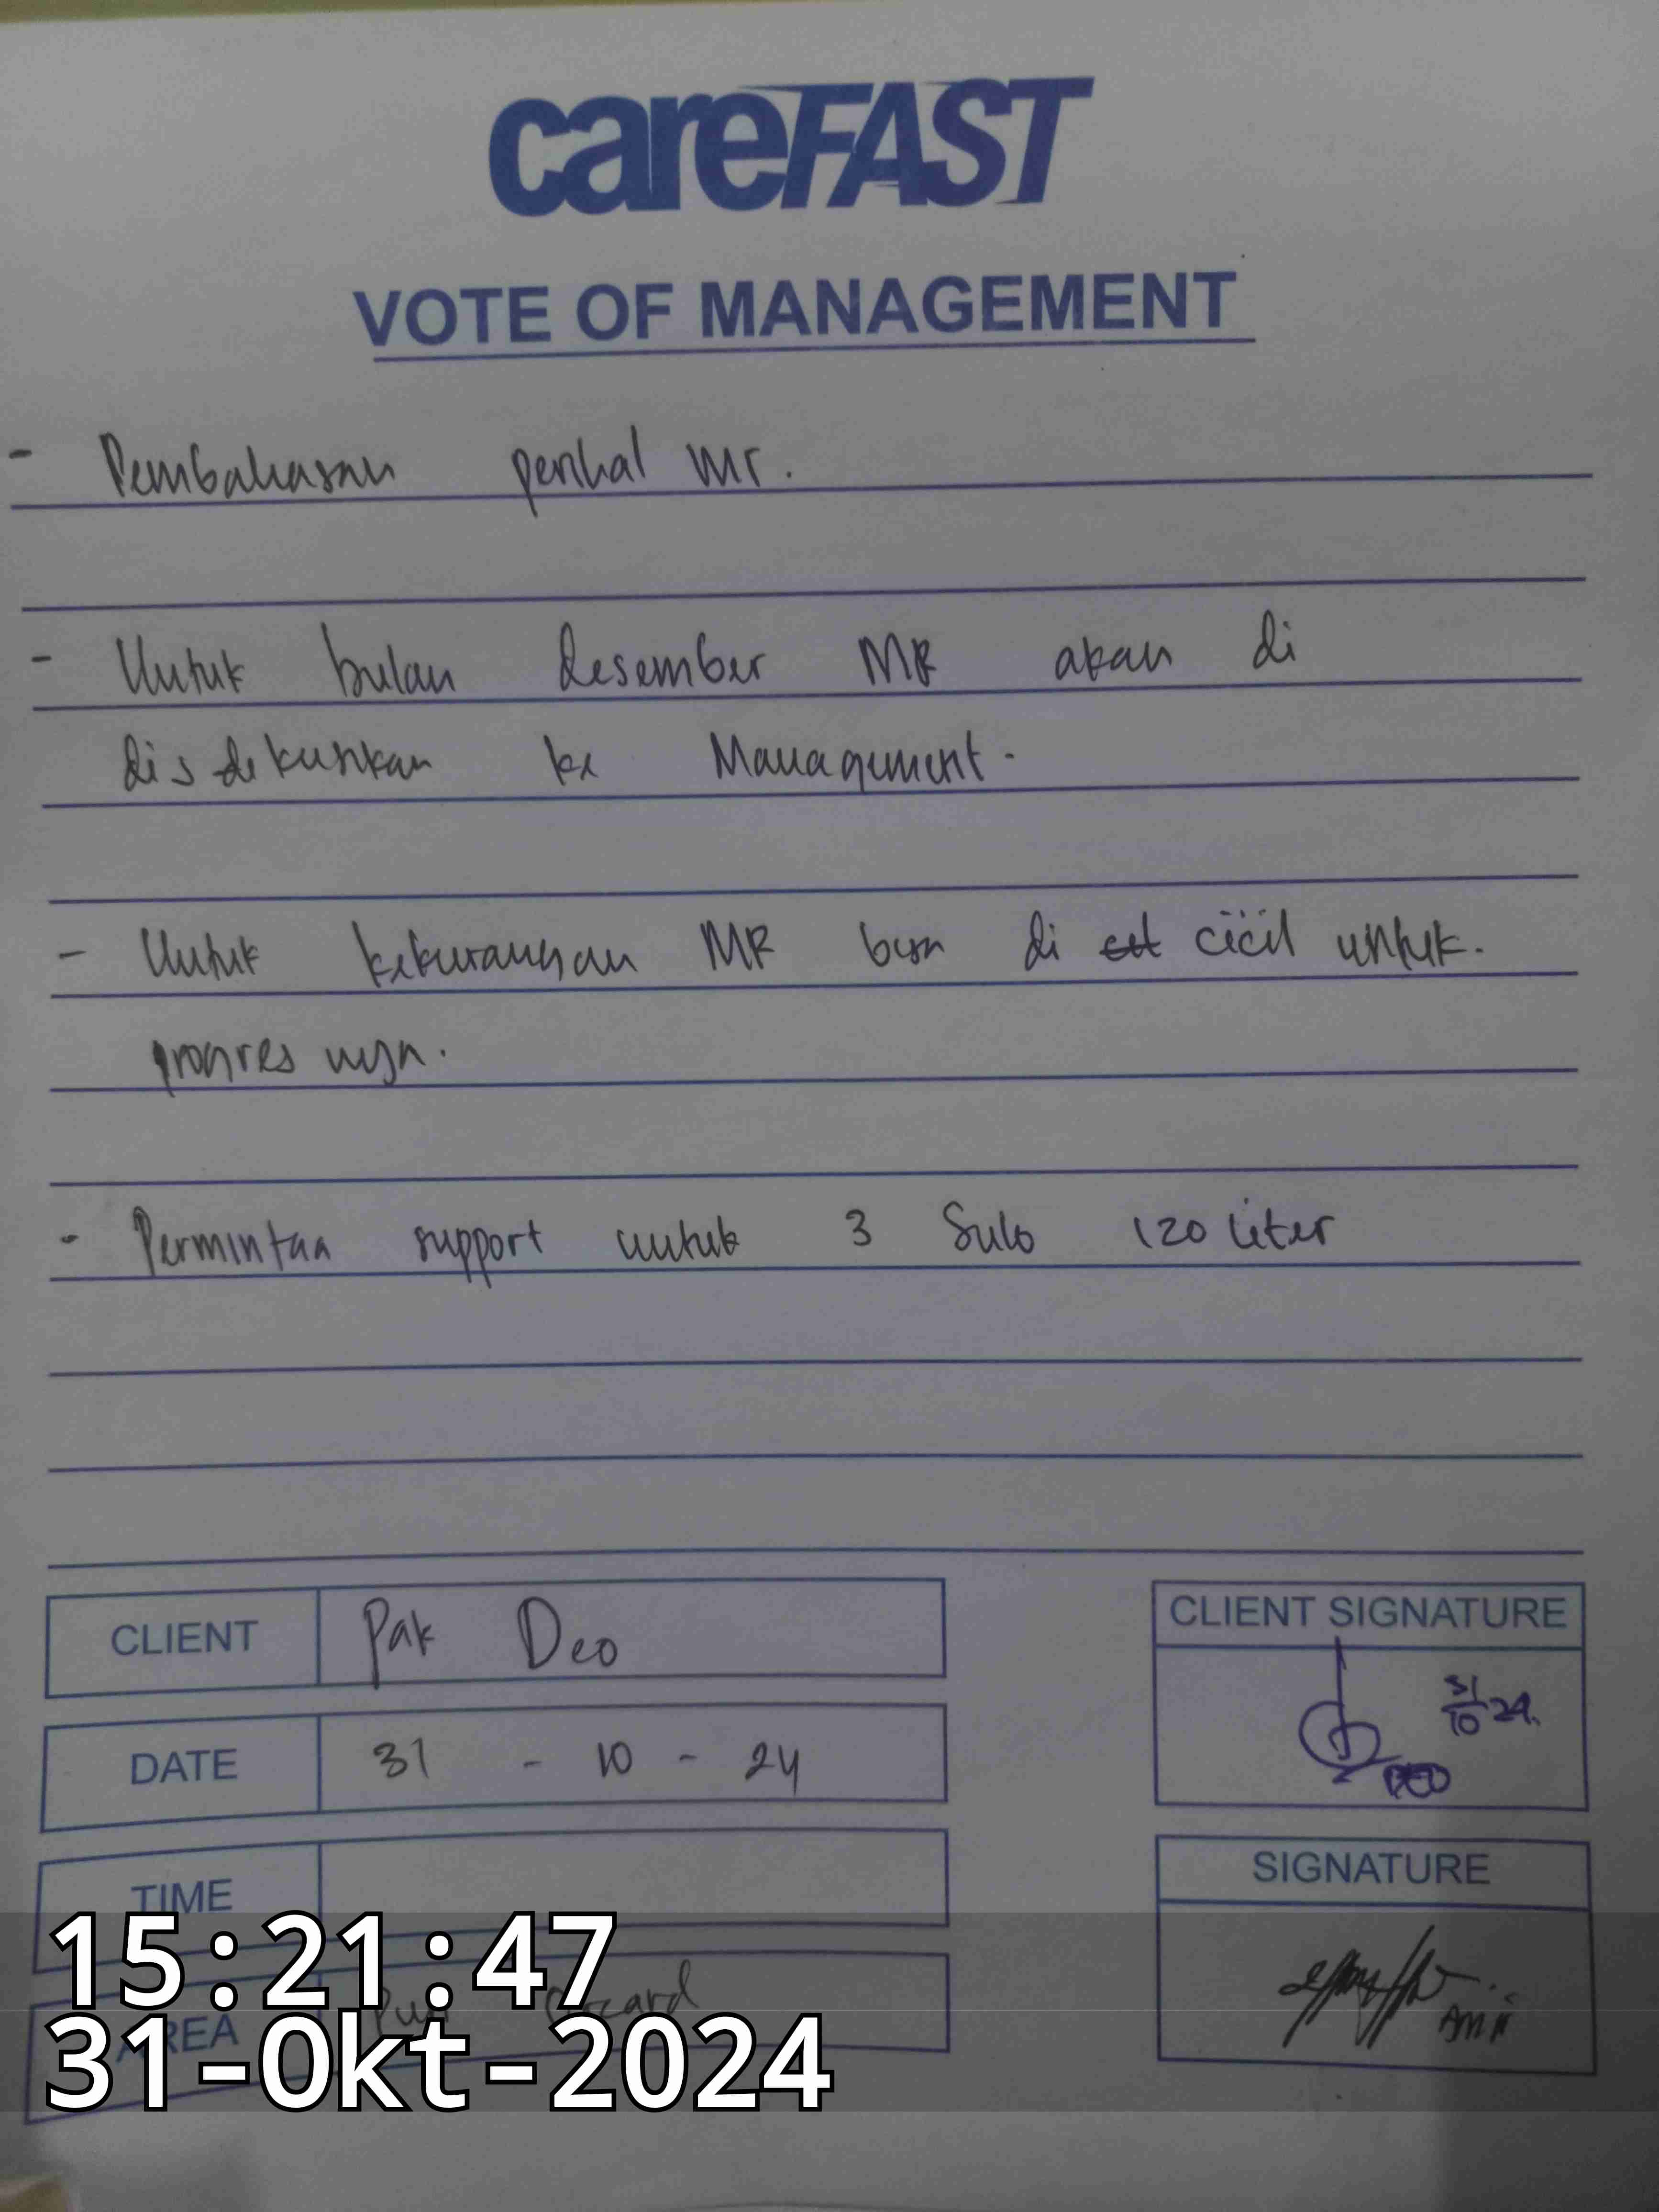 careFAST
VOTE OF MANAGEMENT
- Pembahasan perihal Mr.
- Untuk bulan desember MR akan di
diskusikan ke Management.
- Untuk kekurangan MR bisa di cicil untuk.
progres nya.
- Permintaa support untuk 3 Sulo 120 liter
CLIENT Pak Deo
DATE 31 - 10 - 24
TIME
AREA
CLIENT SIGNATURE
31/10 24.
DEO
SIGNATURE
15:21:47
31-Okt-2024